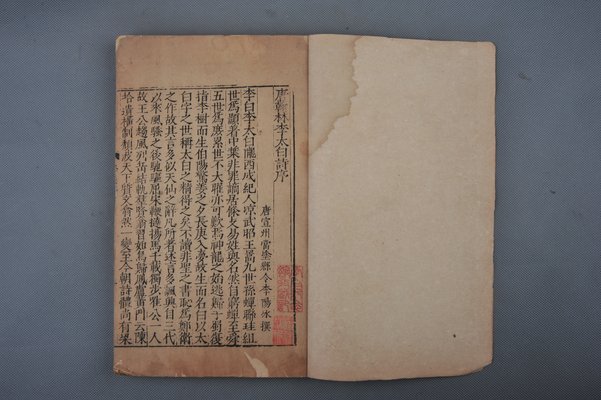 唐翰林李太白詩序
唐宣州當塗縣令李陽冰撰
李白字太白隴西成紀人涼武昭王暠九世孫蟬聯珪組
世為顯著中葉非罪謫居條支易姓與名然自窮蟬至舜
五世為庶累世不大曜亦可歎焉神龍之始逃歸于蜀復
指李樹而生伯陽驚姜之夕長庚入夢故生而名白以太
白字之世稱太白之精得之矣不讀非聖之書恥為鄭衛
之作故其言多似天仙之辭凡所著述言多諷興自三代
以來風騷之後馳驅屈宋鞭撻揚馬千載獨步唯公一人
故王公趨風列岳結軌群賢翕習如鳥歸鳳盧黃門云陳
拾遺橫制頹波天下質文翕然一變至今朝詩體尚有梁